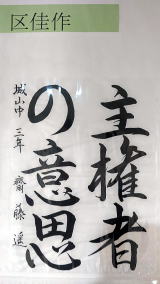 区佳作
主権者
の意思
城山中 三年 齋藤遥